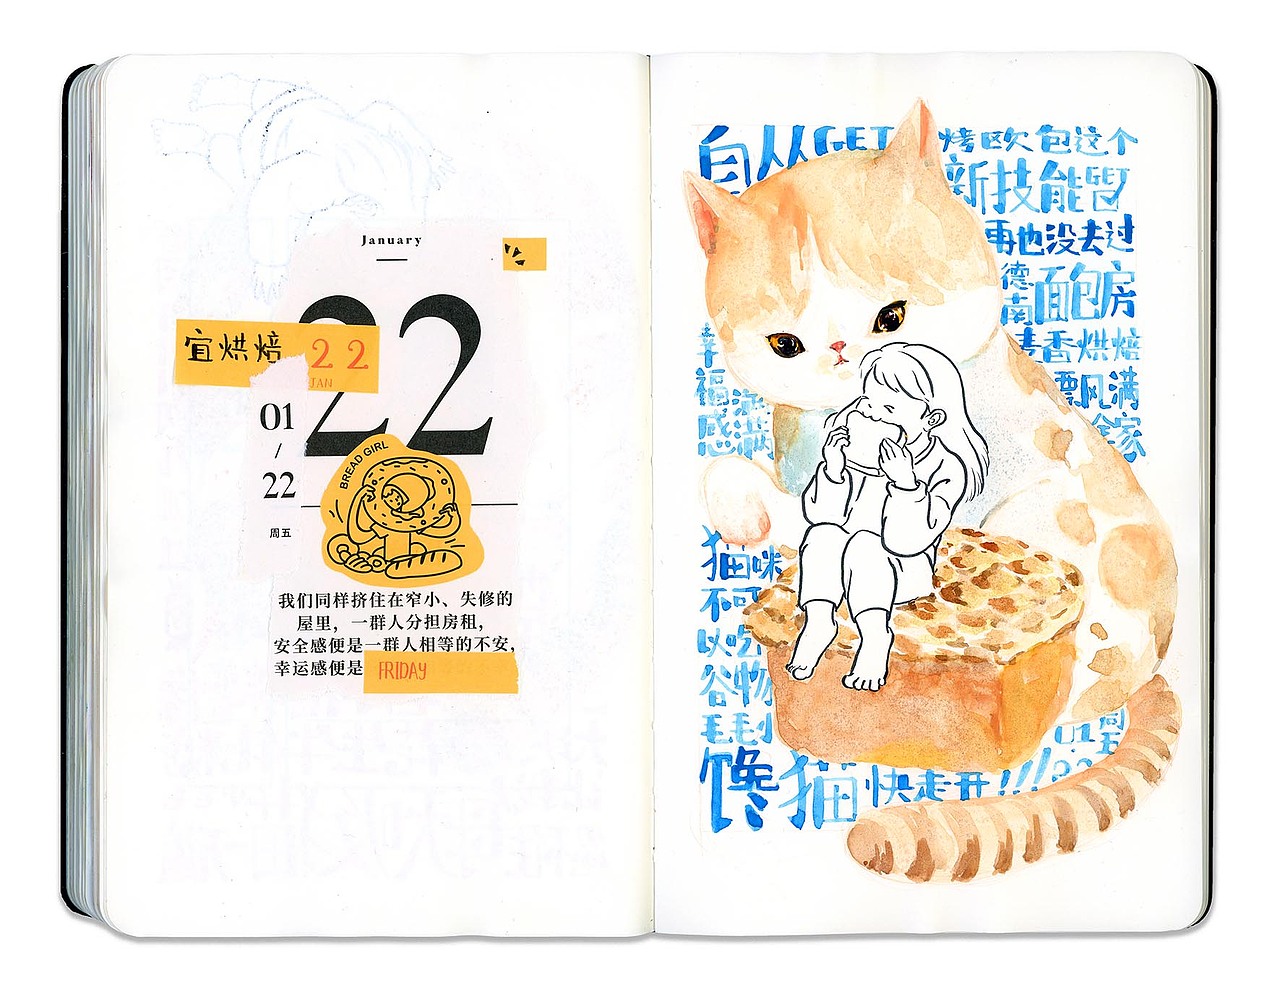 January
宜烘焙
22
JAN
22
01
/
22
周五
BREAD GIRL
我们同样挤住在窄小、失修的
屋里，一群人分担房租，
安全感便是一群人相等的不安，
幸运感便是
FRIDAY
自从GET
烤欧包这个
新技能
再也没去过
德
面包房
南
麦香烘焙
飘风满
全家
幸
福
感
满满
猫咪
不可
以吃
谷物
毛毛
馋猫快走开!!!
01
周五
22